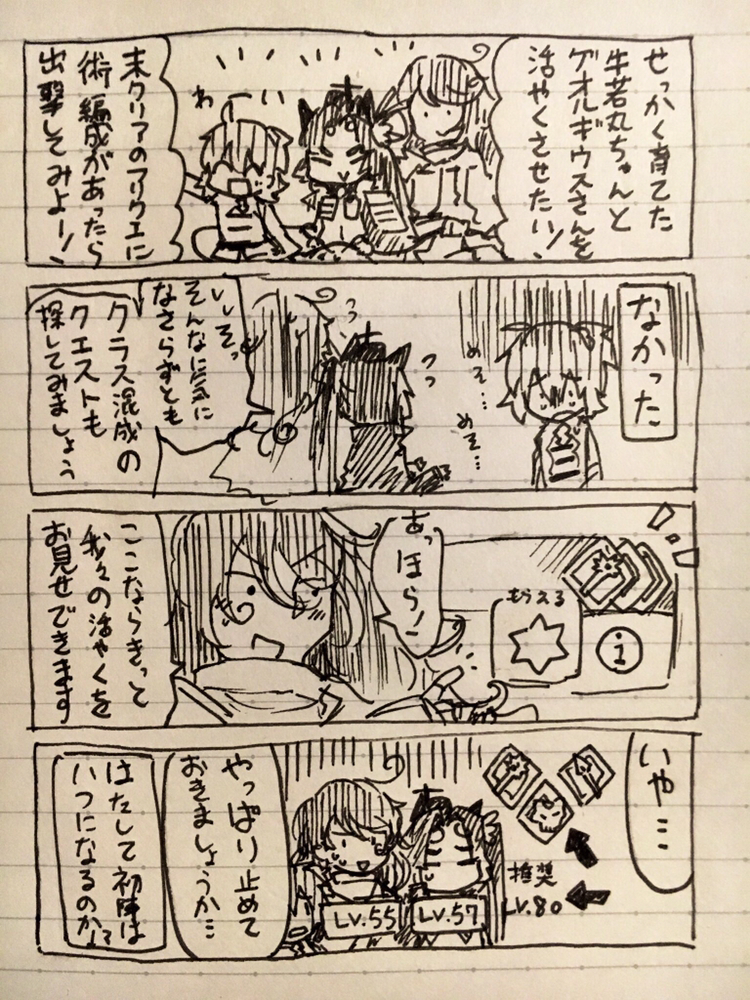 せっかく育てた
牛若丸ちゃんと
ゲオルギウスさんを
活やくさせたい!
わ
い
末クリアのフリクエに
術編成があったら
出撃してみよー!
なかった
めそ…
めそ…
いえそっ
そんなに気に
なさらずとも
クラス混成の
クエストも
探してみましょう
あっ
ほら!
もらえる
i
ここならきっと
我々の活やくを
お見せできます
いや…
推奨
Lv.80
Lv.57
Lv.55
やっぱり止めて
おきましょうか…
はたして初陣は
いつになるのか!?